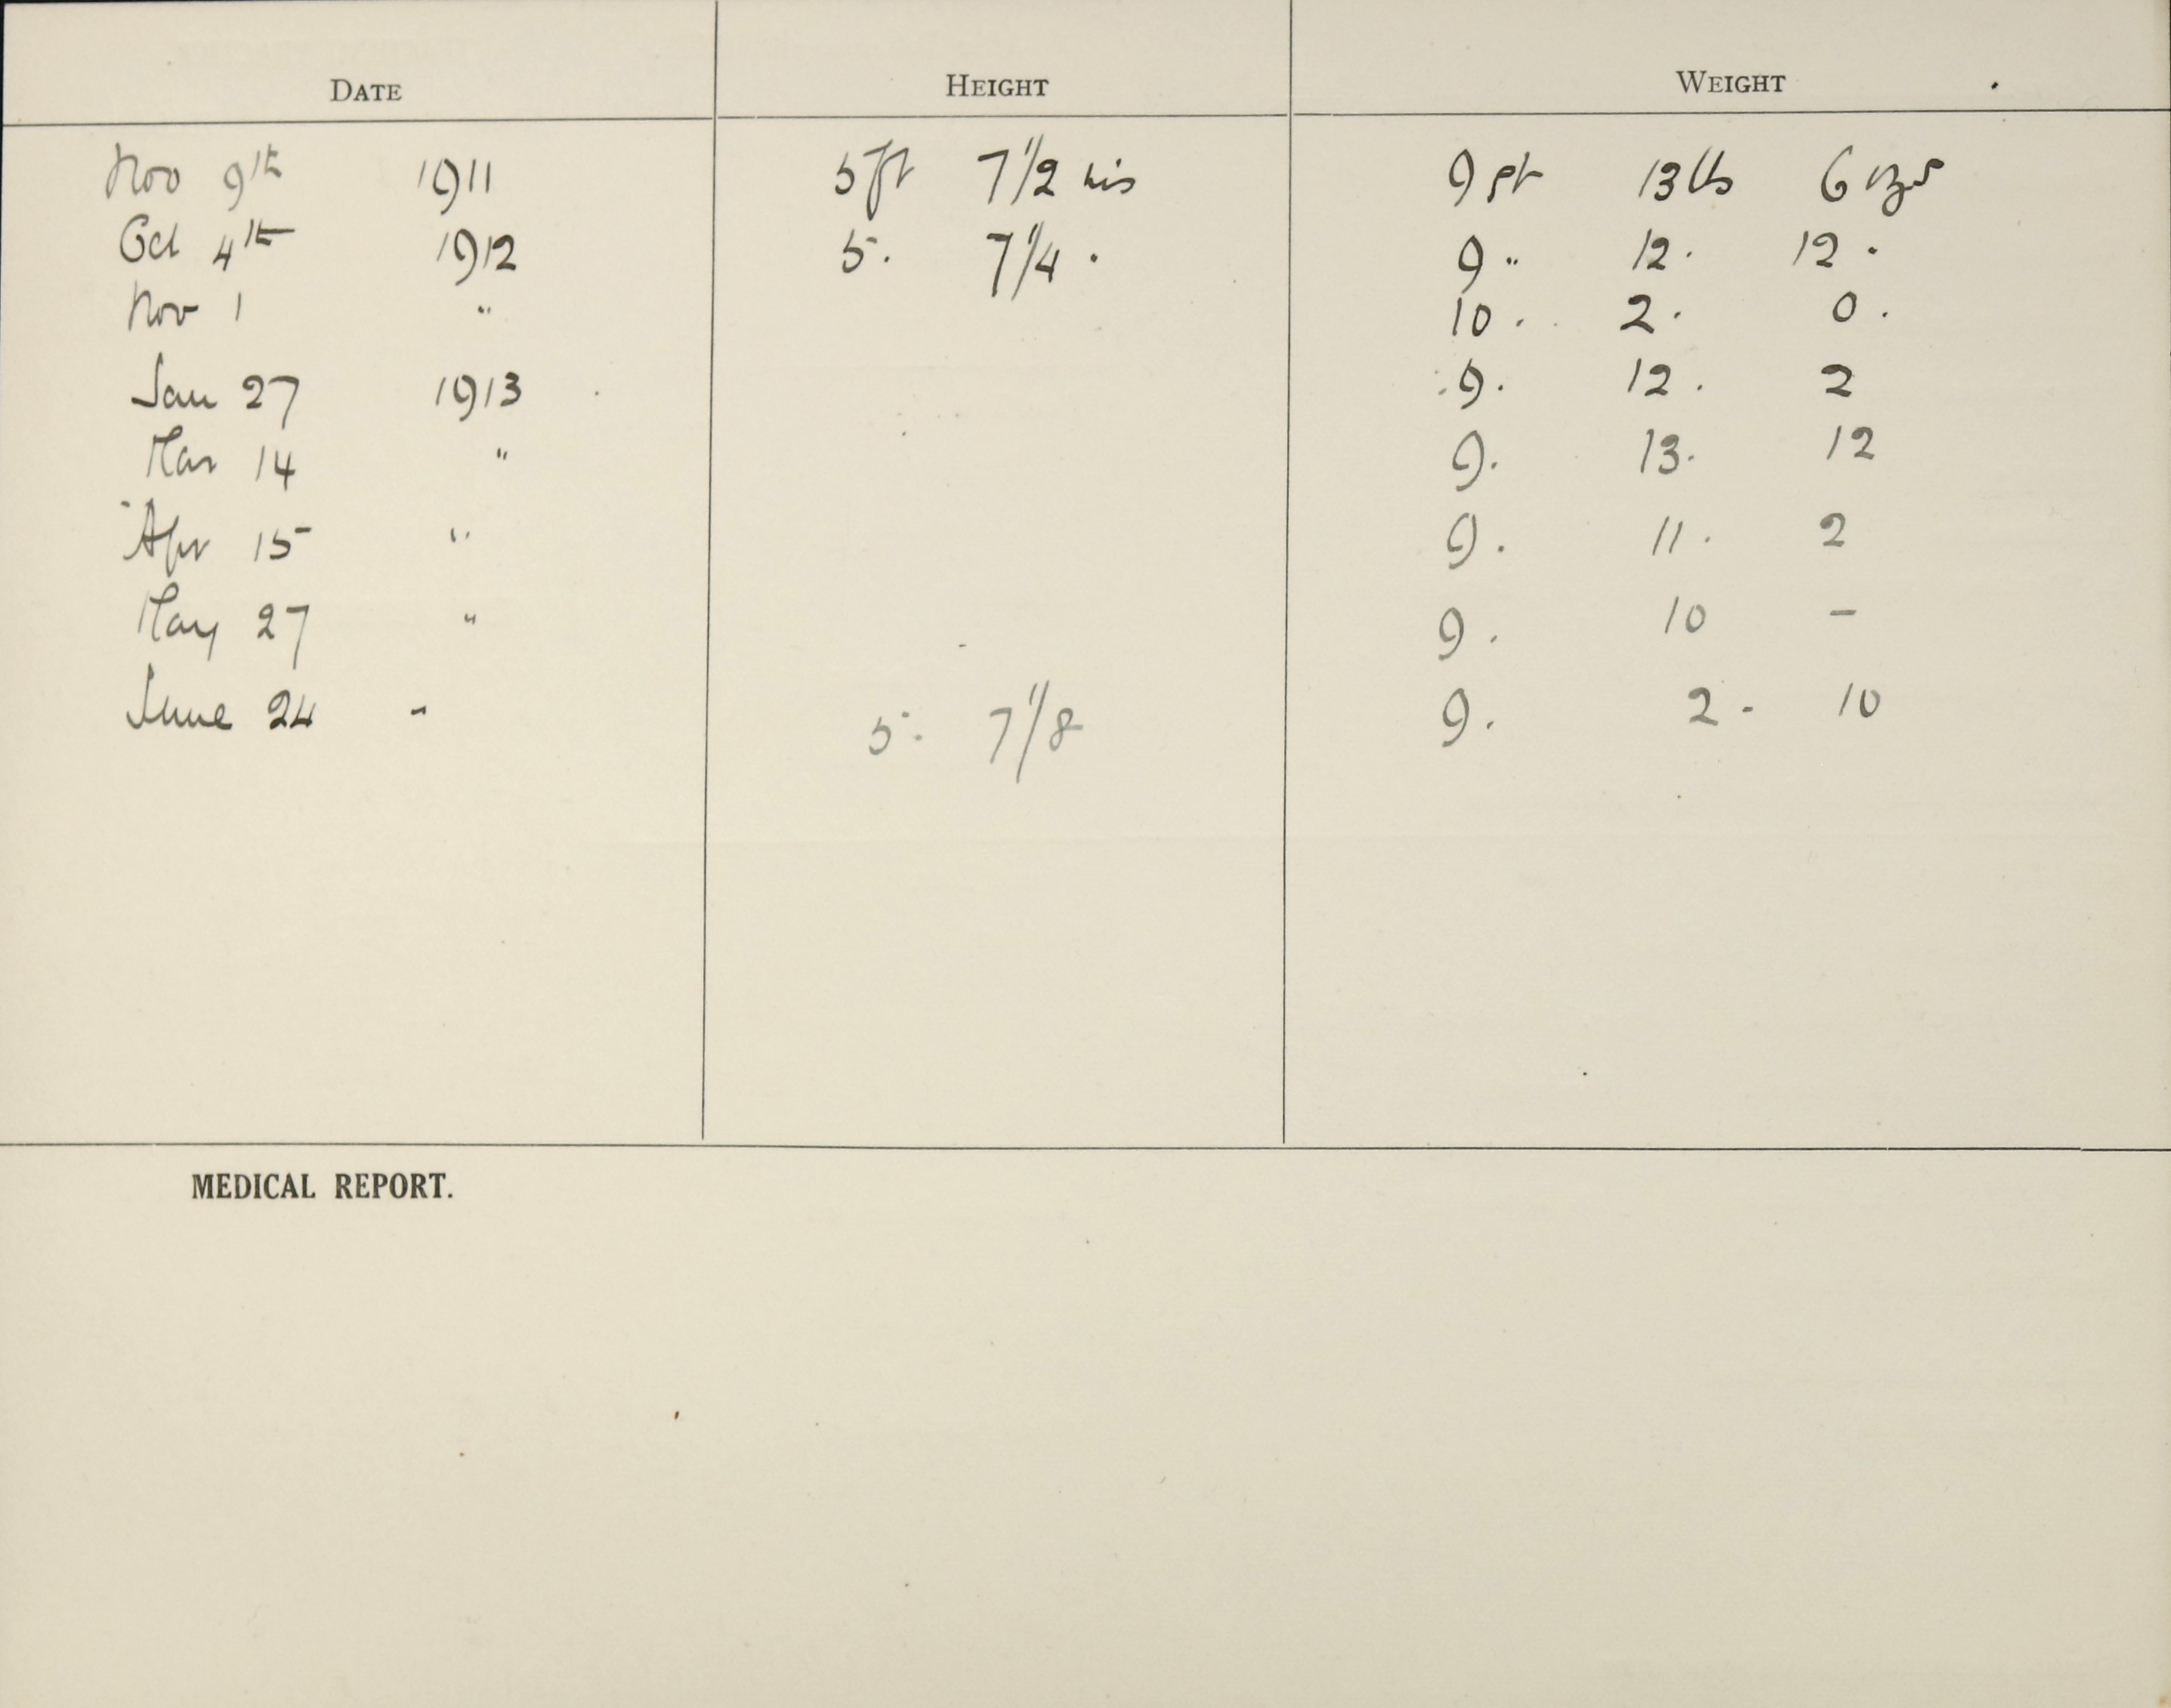 DATE HEIGHT WEIGHT
Nov 9th 1911 5 ft 7 1/2 ins 9 st 13 lbs 6 ozs
Oct 4th 1912 5 . 7 1/4 . 9 " 12 . 12 .
Nov 1 " 10 . 2 . 0 .
Jan 27 1913 9 . 12 . 2
Mar 14 " 9 . 13 . 12
Apr 15 " 9 . 11 . 2
May 27 " 9 . 10 –
June 24 - 5 . 7 1/8 9 . 2 - 10
MEDICAL REPORT.